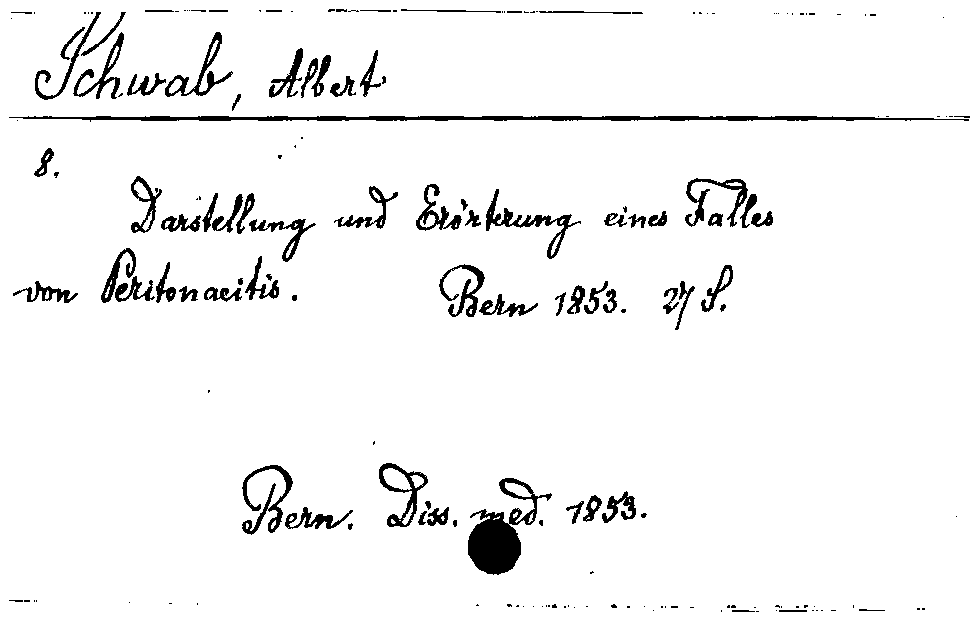 Schwab, Albert
8.
Darstellung und Erörterung eines Falles
von Peritonaeitis. Bern 1853. 27 S.
Bern. Diss. med. 1853.